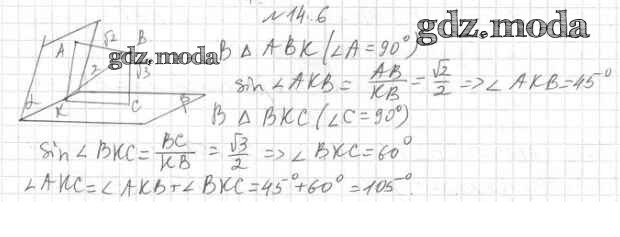 №14.6
gdz.moda
A √2 B
gdz.moda
2 √3
α K C β
В △ ABK (∠A = 90°)
sin ∠AKB = AB/KB = √2/2 => ∠AKB = 45°
В △ BKC (∠C = 90°)
sin ∠BKC = BC/KB = √3/2 => ∠BKC = 60°
∠AKC = ∠AKB + ∠BKC = 45° + 60° = 105°.